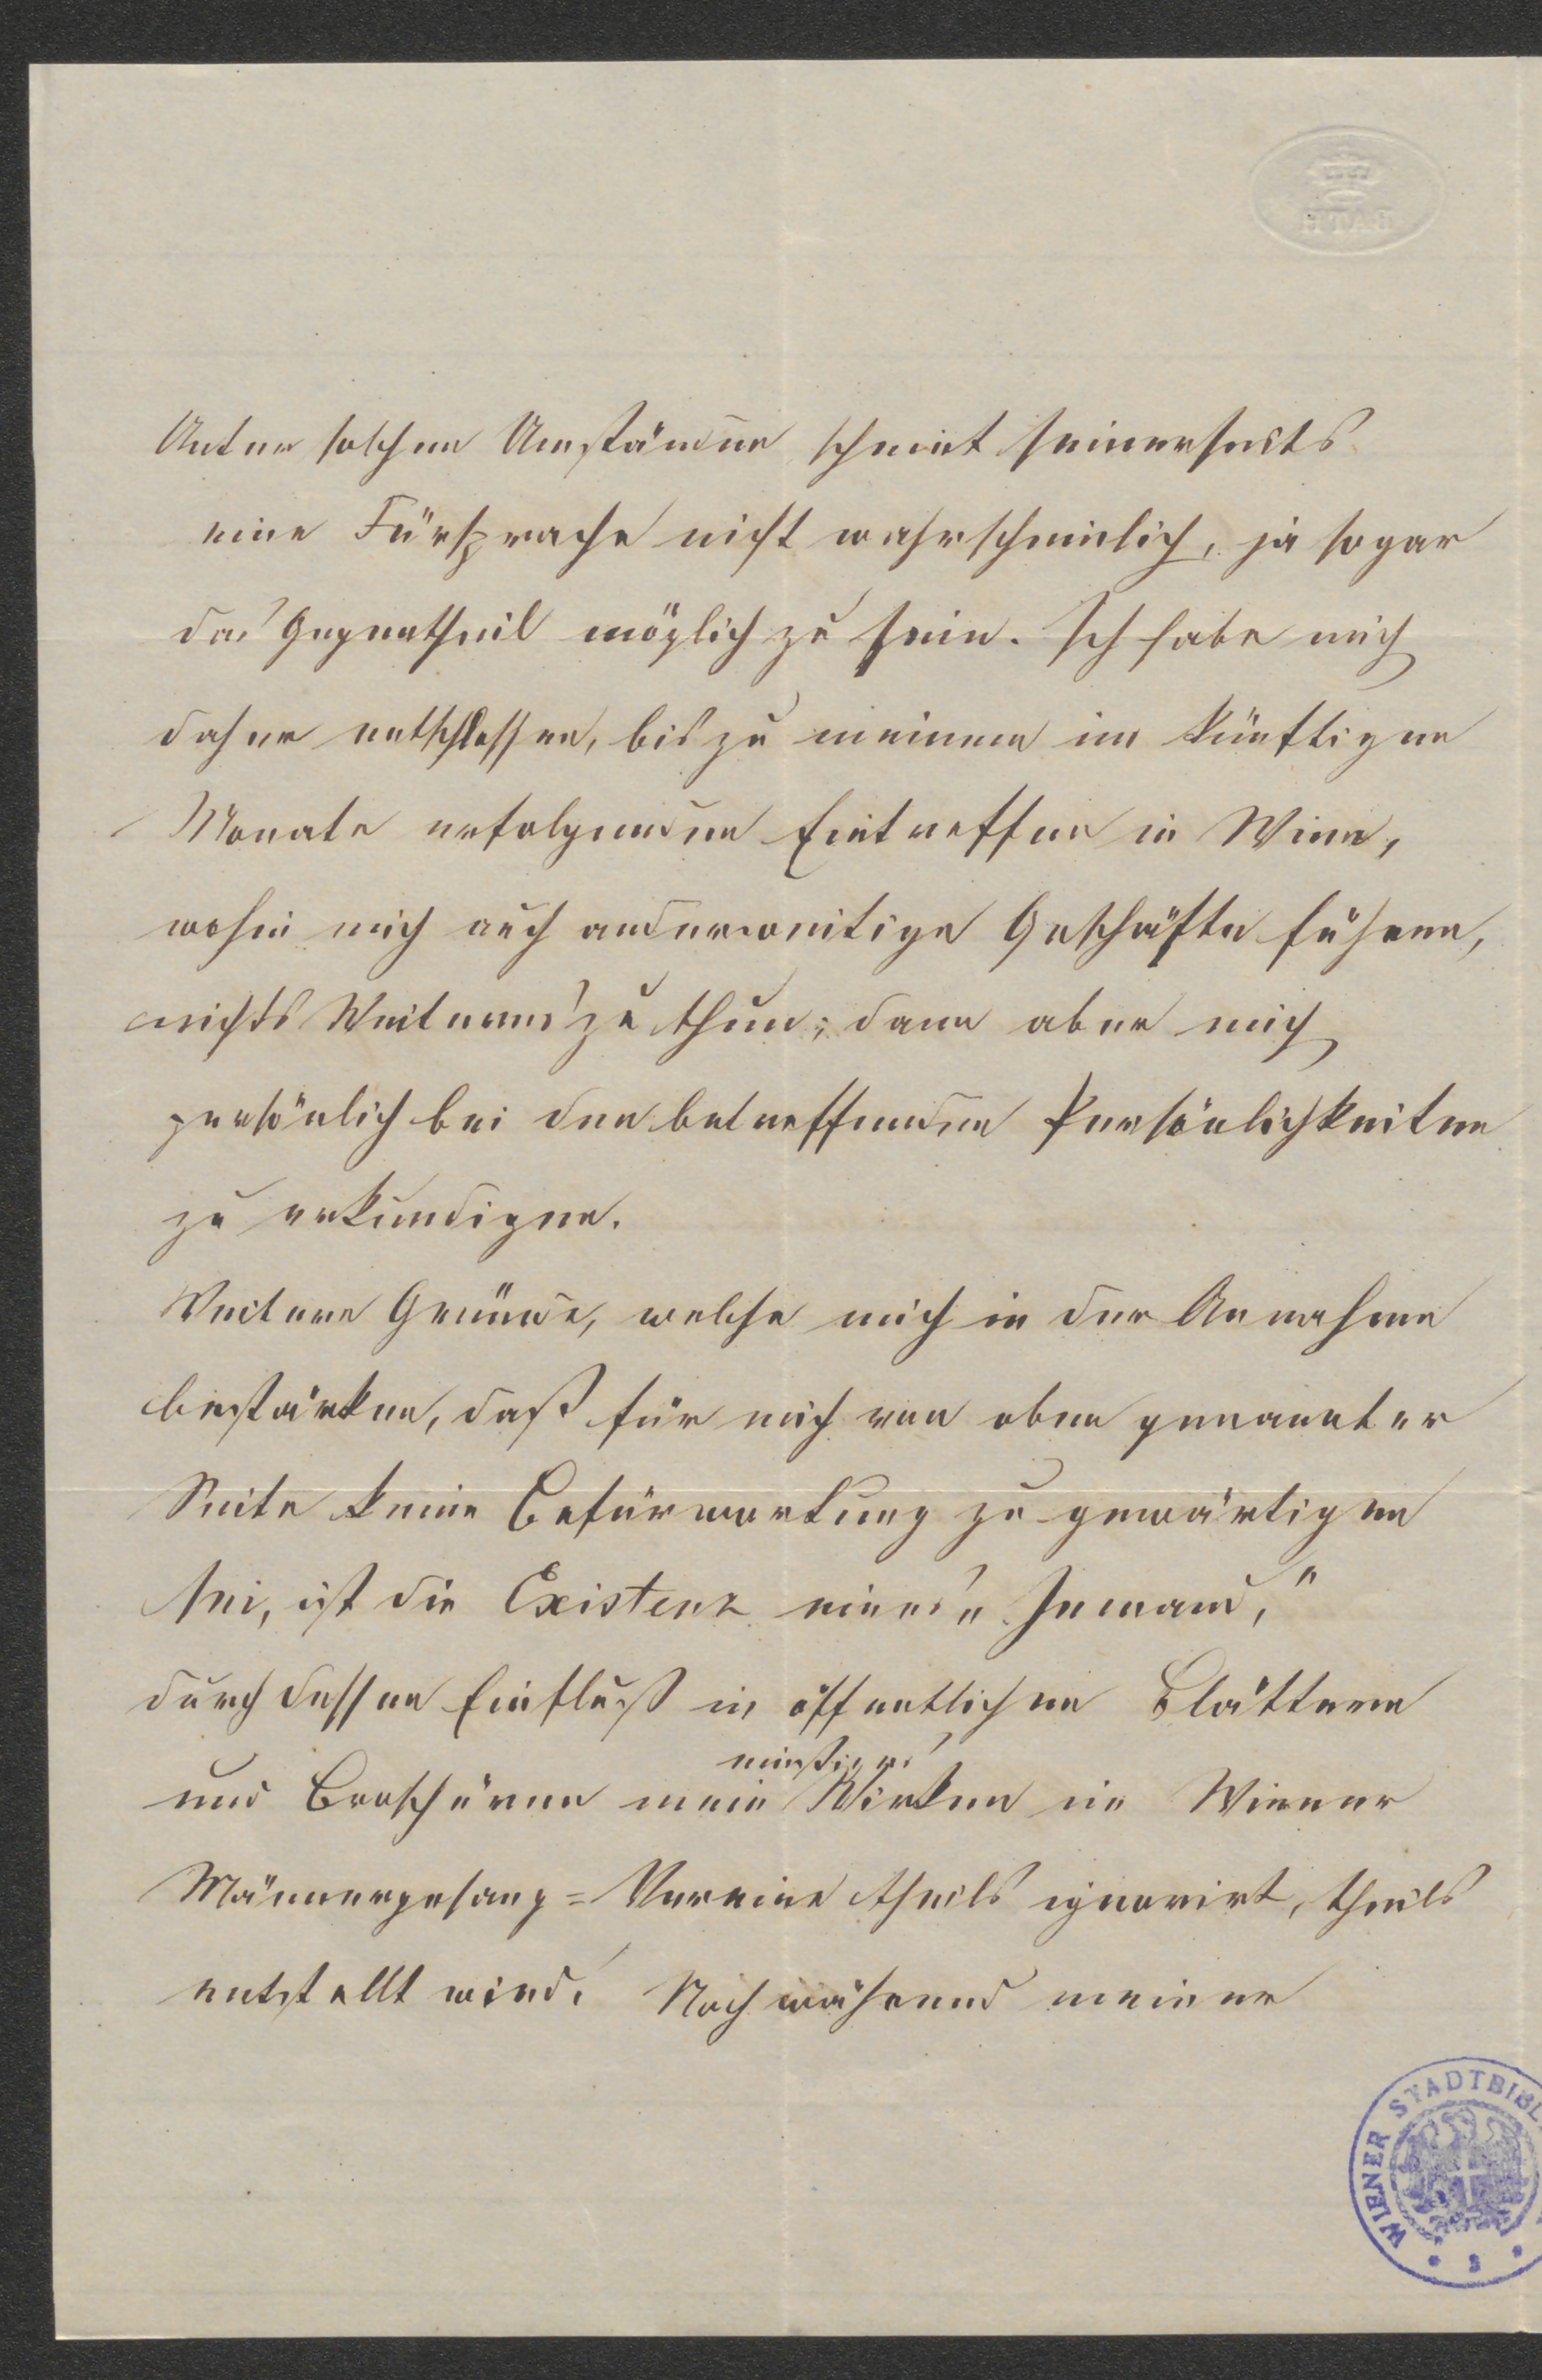 Unter solchen Umständen scheint seinerseits
eine Fürsprache nicht wahrscheinlich, ja sogar
das Gegentheil möglich zu sein. Ich habe mich
daher entschlossen, bis zu meinem im künftigen
Monate erfolgenden Eintreffen in Wien,
wohin mich auch anderweitige Geschäfte führen,
nichts Weiteres zu thun; dann aber mich
persönlich bei den betreffenden Persönlichkeiten
zu erkundigen.
Weitere Gründe, welche mich in der Annahme
bestärken, daß für mich von oben genannter
Seite keine Befürwortung zu gewärtigen
sei, ist die Existenz eines „Jemand,“
durch dessen Einfluß in öffentlichen Blättern
einstiges
und Broschüren mein Wirken im Wiener
Männergesang=Vereine theils ignorirt, theils
entstellt wird. Noch während meiner
WIENER STADTBIBL
BATH